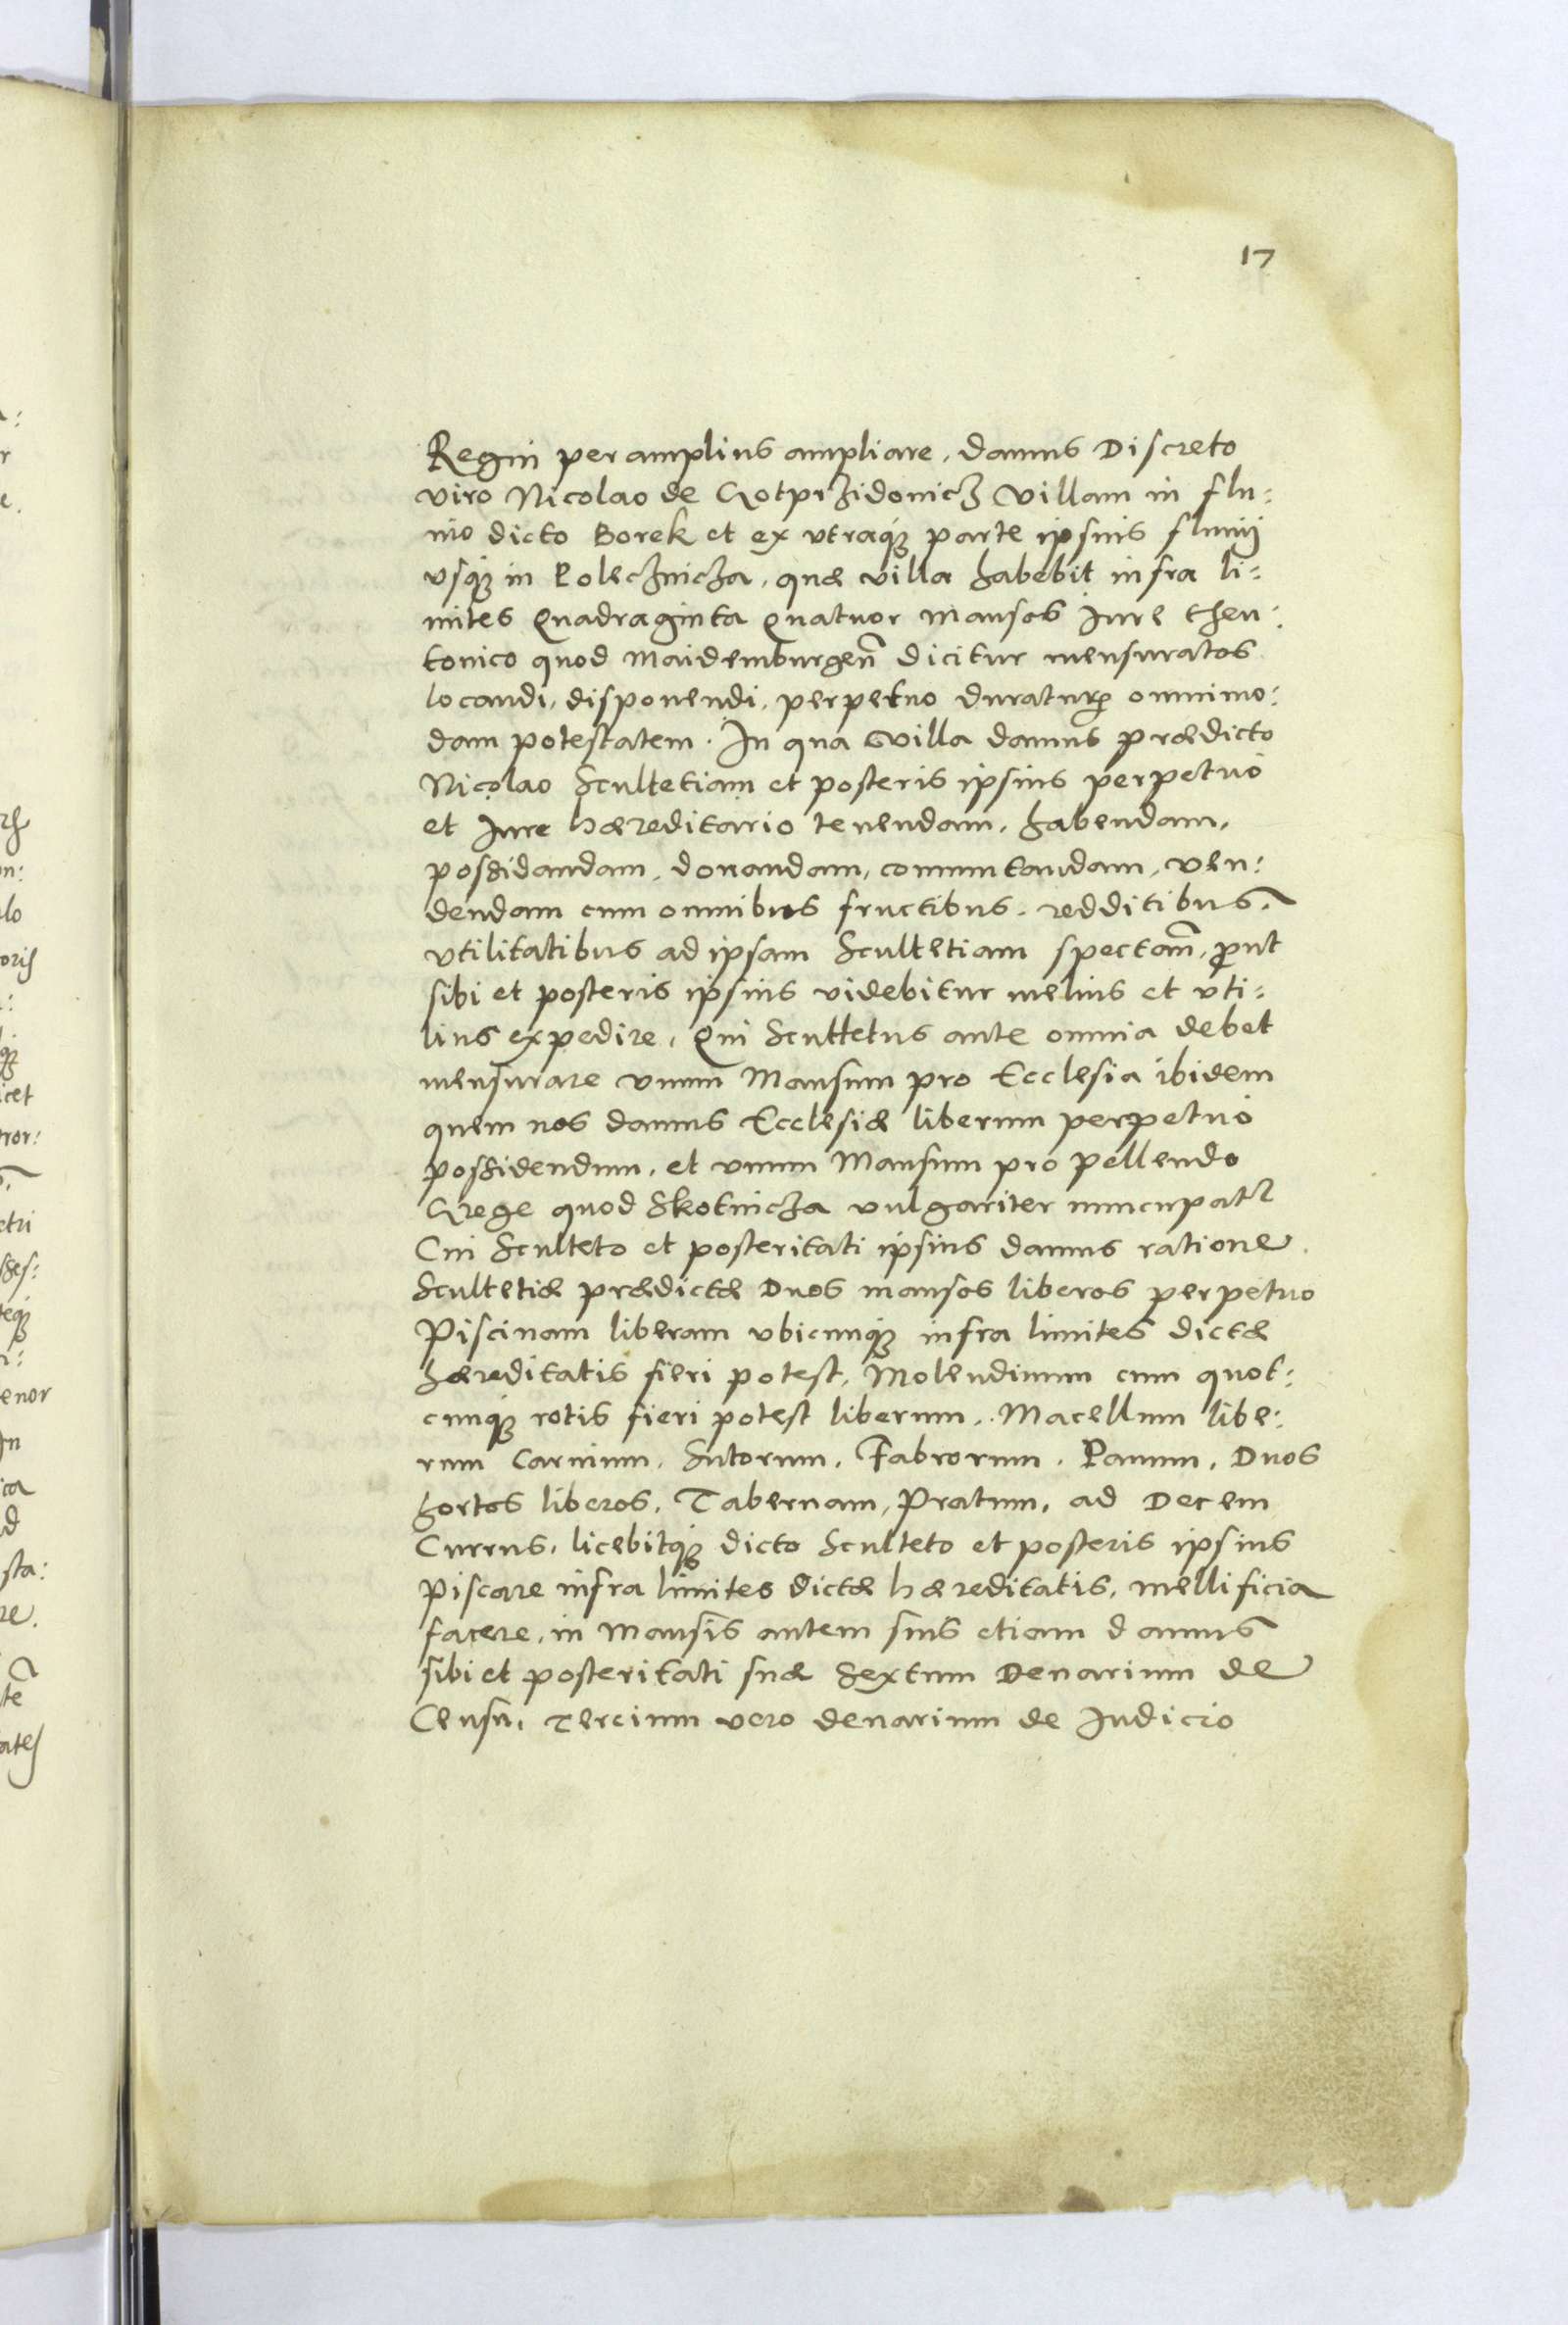 17
Regni peramplius ampliare, damus Discreto
viro Nicolao de Gotprzidonicz Villam in flu:
nio dicto Borek et ex vtraq3 parte ipsius fluuij
vsq3 in Polecznicza, quæ villa habebit infra li:
mites Quadraginta Quatuor mansos Jure theu:
tonico quod Maidemburgen̄ dicitur mensuratos
locandi, disponendi, perpetuo duratur omnimo:
dam potestatem. In qua Villa damus prædicto
Nicolao Scultetiam et posteris ipsius perpetuo
et Jure hæreditario tenendam, habendam,
possidandam, donandam, comuntandam, ven:
dendam cum omnibus fructibus, redditibus,
vtilitatibus ad ipsam Scultetiam spectan̄, ꝓut
sibi et posteris ipsius videbitur melius et vti:
lius expedire, Qui Scultetus ante omnia debet
mensurare vnum Mansum pro Ecclesia ibidem
quem nos damus Ecclesiæ liberum perpetuo
possidendum, et vnum Mansum pro pellendo
Grege quod Skotnicza vulgariter nuncupat̄
Cui Sculteto et posteritati ipsius damus ratione
Scultetiæ prædictæ Duos mansos liberos perpetuo
Piscinam liberam vbicunq3 infra limites dictæ
hæreditatis fieri potest, Molendinum cum quot:
cunq3 rotis fieri potest liberum, Macellum libe:
rum Carnium, Sutorum, Fabrorum, Panum, Duos
hortos liberos, Tabernam, Pratum, ad Decem
Currus, licebitq3 dicto Sculteto et posteris ipsius
Piscare infra limites dictæ hæreditatis, mellificia
facere, in Mansis autem suis etiam damus
sibi et posteritati suæ Sextum Denarium de
Censu, Tercium vero denarium de Judicio